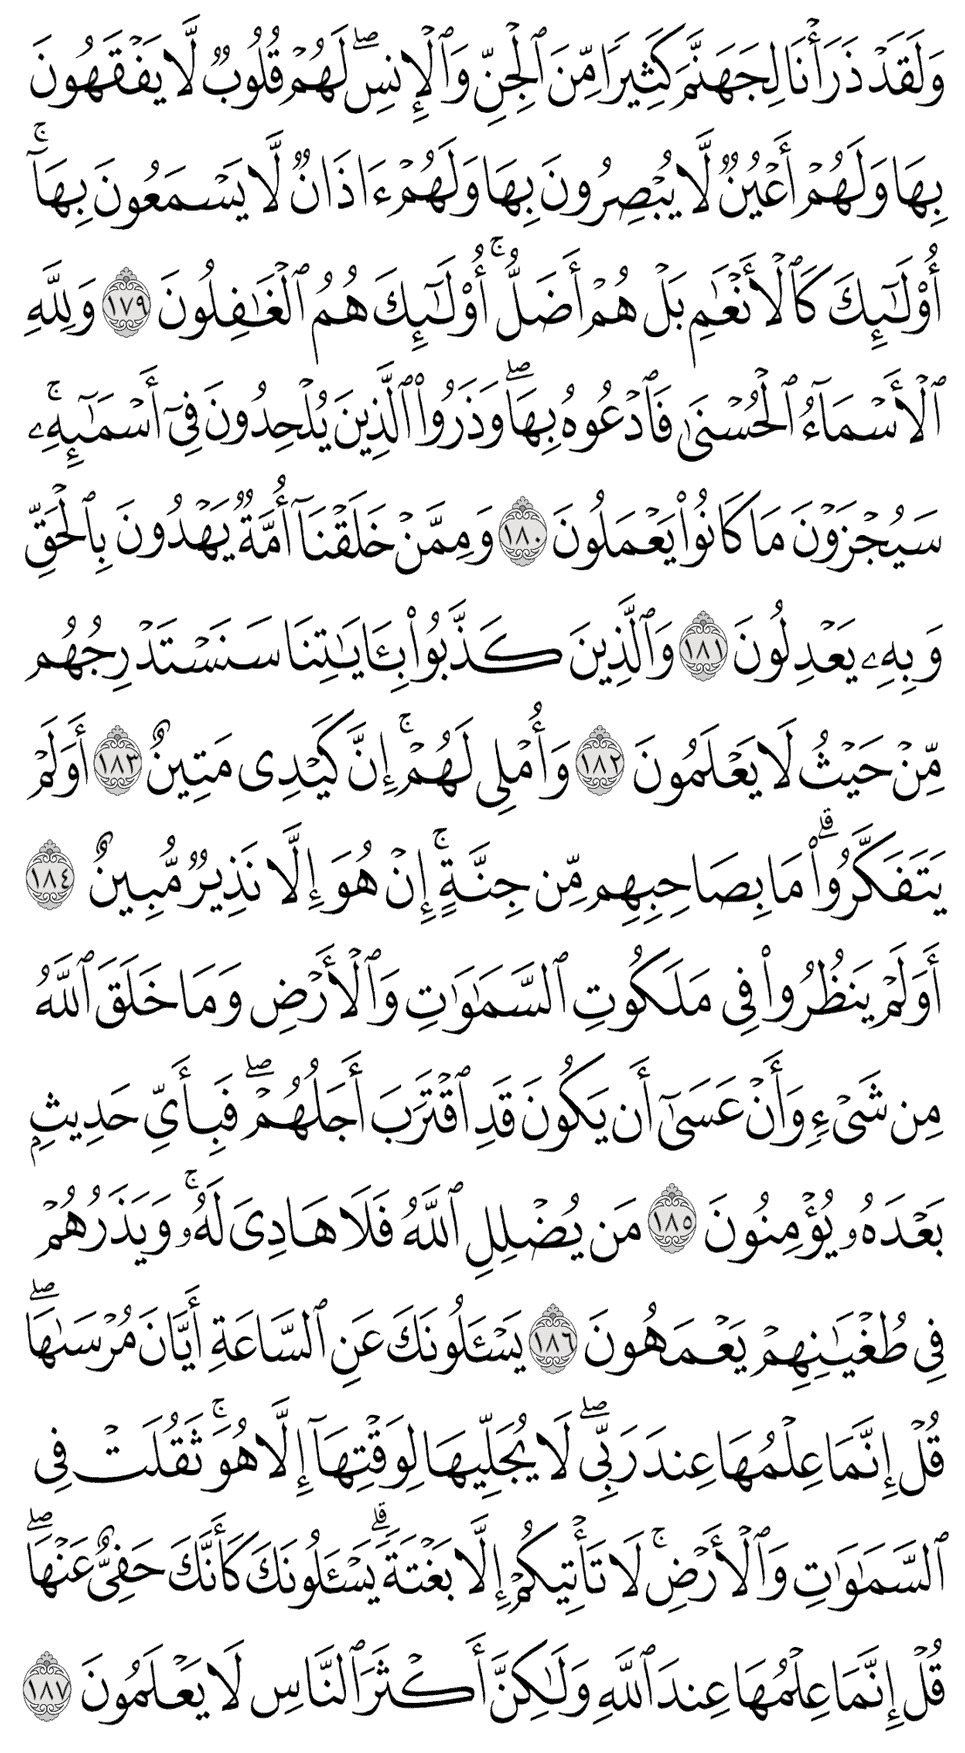 وَلَقَدۡ ذَرَأۡنَا لِجَهَنَّمَ كَثِيرٗا مِّنَ ٱلۡجِنِّ وَٱلۡإِنسِۖ لَهُمۡ قُلُوبٞ لَّا يَفۡقَهُونَ
بِهَا وَلَهُمۡ أَعۡيُنٞ لَّا يُبۡصِرُونَ بِهَا وَلَهُمۡ ءَاذَانٞ لَّا يَسۡمَعُونَ بِهَآۚ
أُوْلَٰٓئِكَ كَٱلۡأَنۡعَٰمِ بَلۡ هُمۡ أَضَلُّۚ أُوْلَٰٓئِكَ هُمُ ٱلۡغَٰفِلُونَ ١٧٩ وَلِلَّهِ
ٱلۡأَسۡمَآءُ ٱلۡحُسۡنَىٰ فَٱدۡعُوهُ بِهَاۖ وَذَرُواْ ٱلَّذِينَ يُلۡحِدُونَ فِيٓ أَسۡمَٰٓئِهِۦۚ
سَيُجۡزَوۡنَ مَا كَانُواْ يَعۡمَلُونَ ١٨٠ وَمِمَّنۡ خَلَقۡنَآ أُمَّةٞ يَهۡدُونَ بِٱلۡحَقِّ
وَبِهِۦ يَعۡدِلُونَ ١٨١ وَٱلَّذِينَ كَذَّبُواْ بِـَٔايَٰتِنَا سَنَسۡتَدۡرِجُهُم
مِّنۡ حَيۡثُ لَا يَعۡلَمُونَ ١٨٢ وَأُمۡلِي لَهُمۡۚ إِنَّ كَيۡدِي مَتِينٌ ١٨٣ أَوَلَمۡ
يَتَفَكَّرُواْۗ مَا بِصَاحِبِهِم مِّن جِنَّةٍۚ إِنۡ هُوَ إِلَّا نَذِيرٞ مُّبِينٌ ١٨٤
أَوَلَمۡ يَنظُرُواْ فِي مَلَكُوتِ ٱلسَّمَٰوَٰتِ وَٱلۡأَرۡضِ وَمَا خَلَقَ ٱللَّهُ
مِن شَيۡءٖ وَأَنۡ عَسَىٰٓ أَن يَكُونَ قَدِ ٱقۡتَرَبَ أَجَلُهُمۡۖ فَبِأَيِّ حَدِيثِۭ
بَعۡدَهُۥ يُؤۡمِنُونَ ١٨٥ مَن يُضۡلِلِ ٱللَّهُ فَلَا هَادِيَ لَهُۥۚ وَيَذَرُهُمۡ
فِي طُغۡيَٰنِهِمۡ يَعۡمَهُونَ ١٨٦ يَسۡـَٔلُونَكَ عَنِ ٱلسَّاعَةِ أَيَّانَ مُرۡسَىٰهَاۖ
قُلۡ إِنَّمَا عِلۡمُهَا عِندَ رَبِّيۖ لَا يُجَلِّيهَا لِوَقۡتِهَآ إِلَّا هُوَۚ ثَقُلَتۡ فِي
ٱلسَّمَٰوَٰتِ وَٱلۡأَرۡضِۚ لَا تَأۡتِيكُمۡ إِلَّا بَغۡتَةٗۗ يَسۡـَٔلُونَكَ كَأَنَّكَ حَفِيٌّ عَنۡهَاۖ
قُلۡ إِنَّمَا عِلۡمُهَا عِندَ ٱللَّهِ وَلَٰكِنَّ أَكۡثَرَ ٱلنَّاسِ لَا يَعۡلَمُونَ ١٨٧